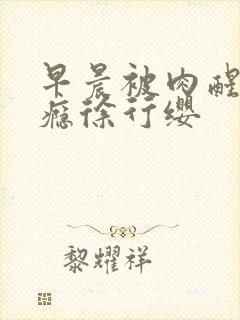 早晨被肉醒
瘾徐行缨
黎耀祥